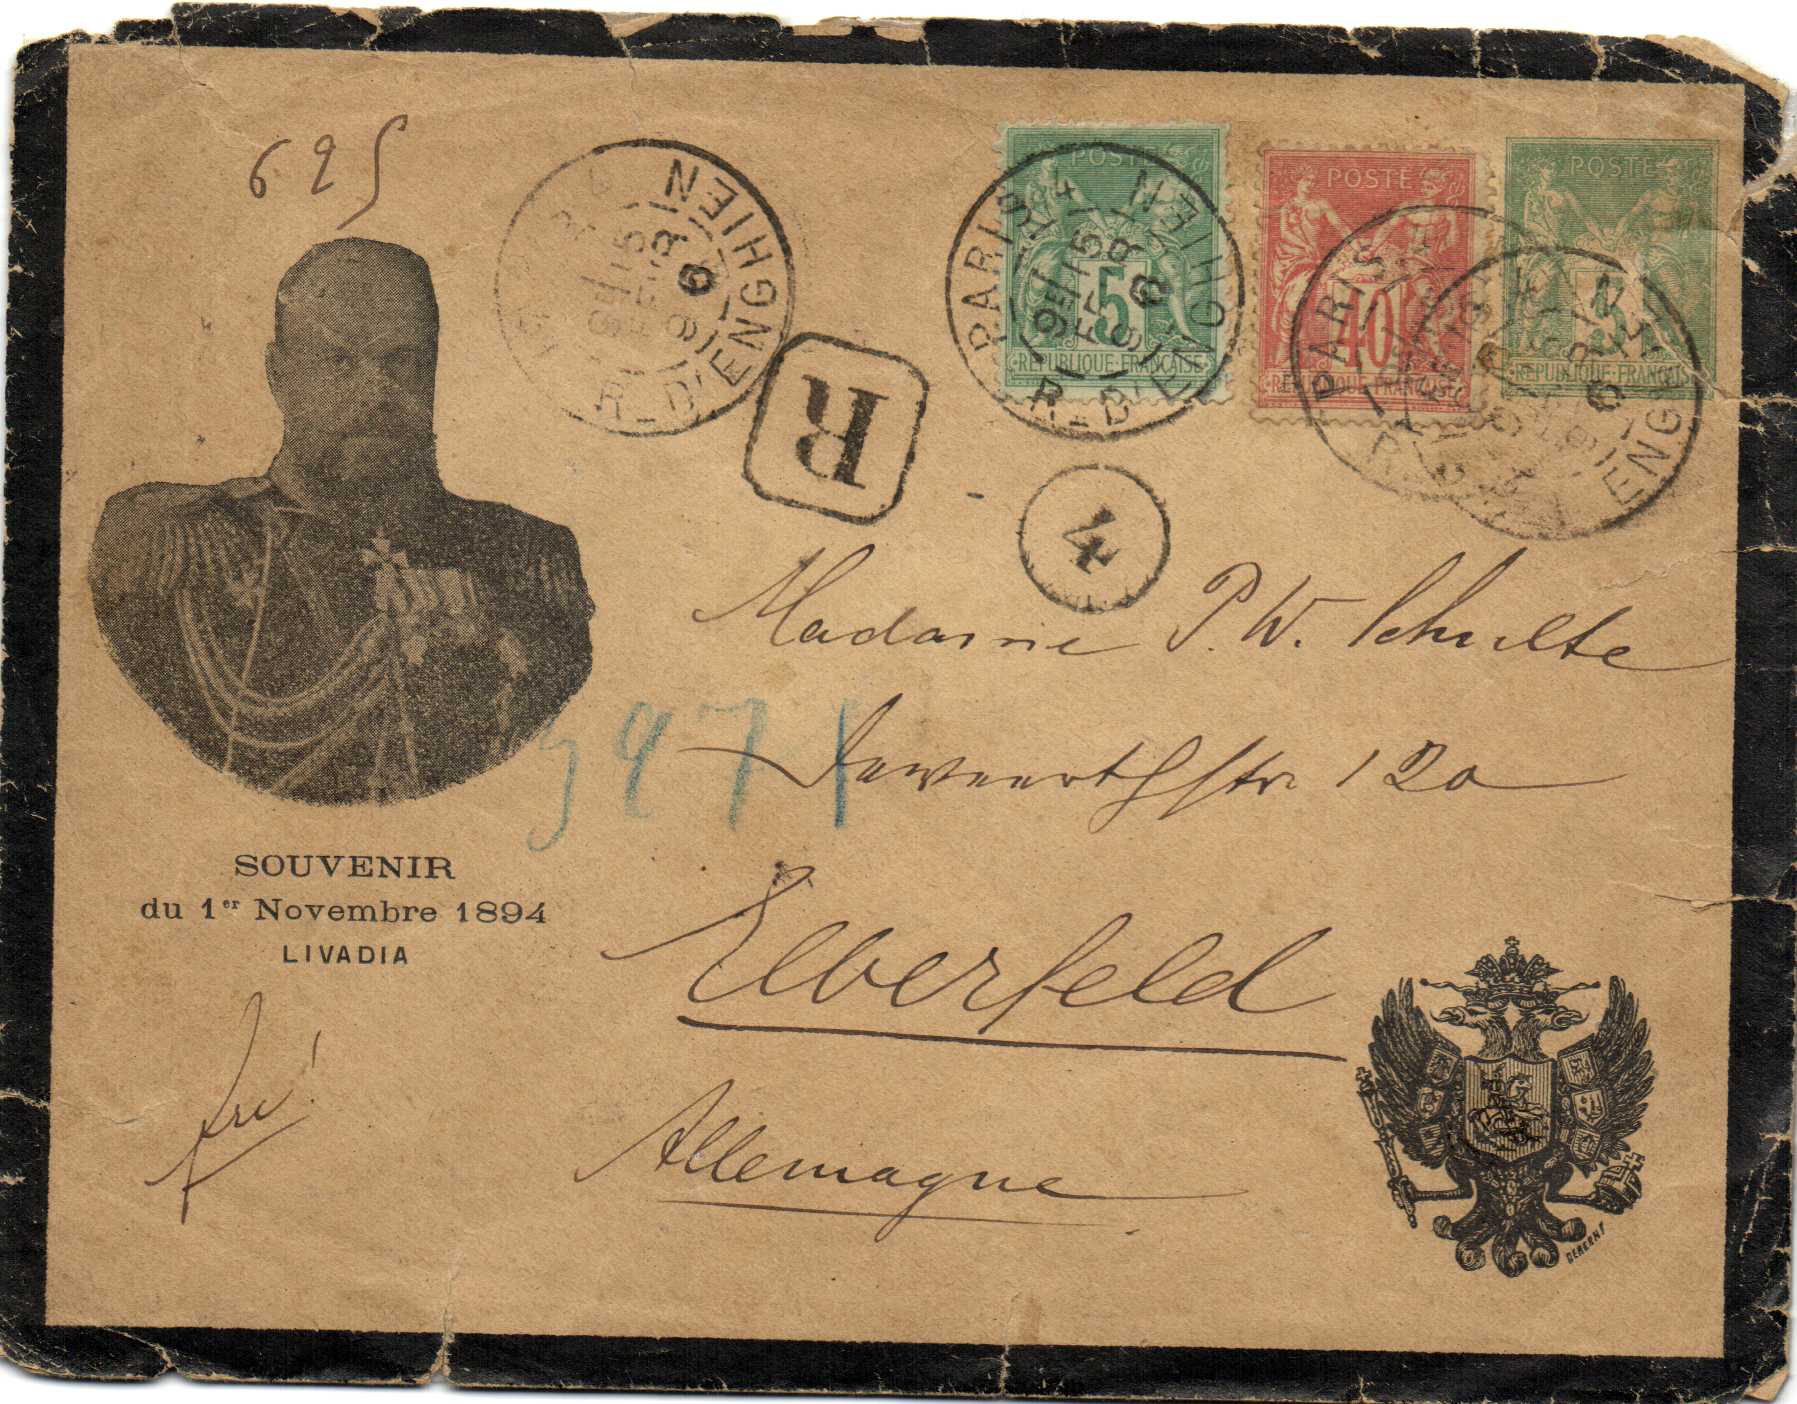 695
PARIS 4 R. D'ENGHIEN
9E 15 FEVR 96
POSTE
5
REPUBLIQUE FRANÇAISE
PARIS 4 R. D'ENGHIEN
9E 15 FEVR 96
POSTE
40
REPUBLIQUE FRANÇAISE
POSTE
5
REPUBLIQUE FRANÇAISE
PARIS
R. D'ENGHIEN
R
4
Madame P. W. Schulte
str 120
3971
Elberfeld
Allemagne
SOUVENIR
du 1er Novembre 1894
LIVADIA